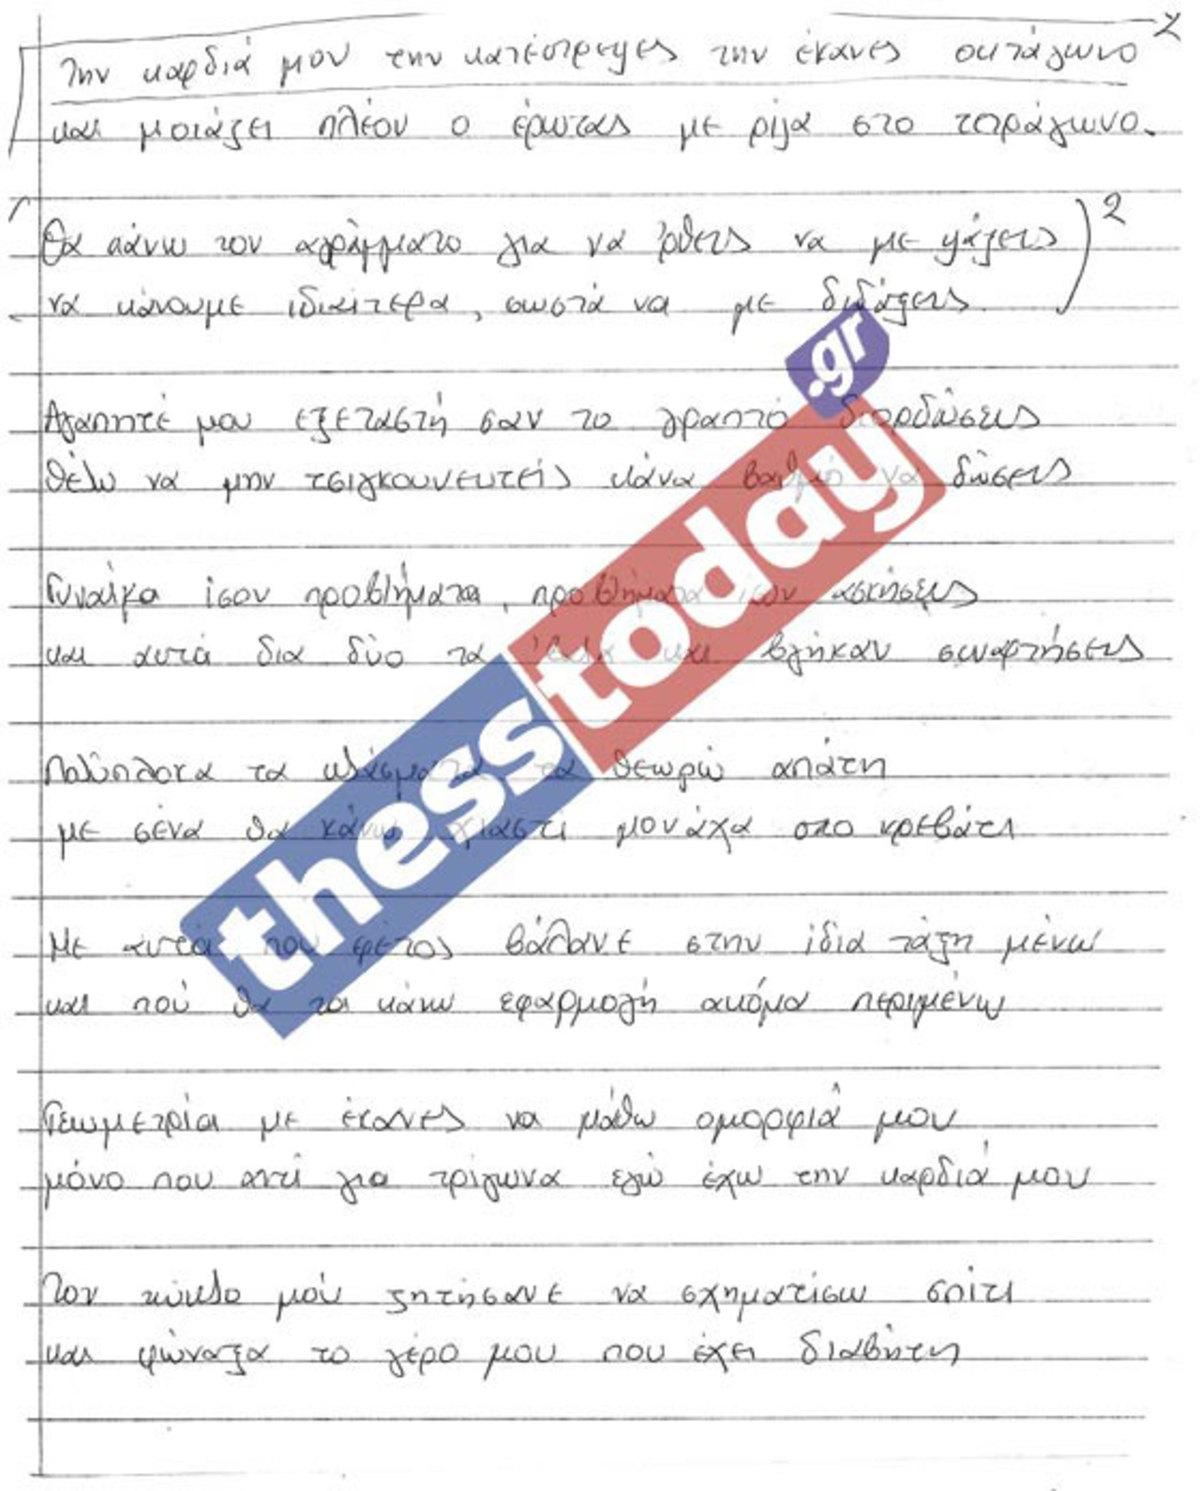 Την καρδιά μου την κατέστρεψες την έκανες οκτάγωνο 2
και μοιάζει πλέον ο έρωτας με ρίζα στο τετράγωνο.
Θα κάνω τον αγράμματο για να 'ρθεις να με ψάξεις 2
να κάνουμε ιδιαίτερα, σωστά να με διδάξεις
Αγαπητέ μου εξεταστή σαν το γραπτό διορθώσεις
θέλω να μην τσιγκουνευτείς κάνα βαθμό να δώσεις
Γυναίκα ίσον προβλήματα, προβλήματα ίσον ασκήσεις
και αυτά δια δύο τα έβαλα και βγήκαν συναρτήσεις
Πολύπλοκα τα κλάσματα τα θεωρώ απάτη
με σένα θα κάνω χιαστι μονάχα στο κρεβάτι
Με αυτά που φέτος βάλανε στην ίδια τάξη μένω
και πού θα τα κάνω εφαρμογή ακόμα περιμένω
Γεωμετρία με έκανες να μάθω ομορφιά μου
μόνο που αντί για τρίγωνα εγώ έχω την καρδιά μου
Τον κύκλο μού ζητήσανε να σχηματίσω σπίτι
και φώναξα το γέρο μου που έχει διαβήτη
thesstoday.gr